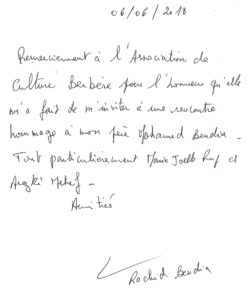 06/06/2018
Remerciement à l'Association de
Culture Berbère pour l'honneur qu'elle
m'a fait de m'inviter à une rencontre
hommage à mon père Mohamed Bendia -
Tout particulièrement Marie Joelle Rup et
Arezki Metref -
Amitiés
Rachid Bendia